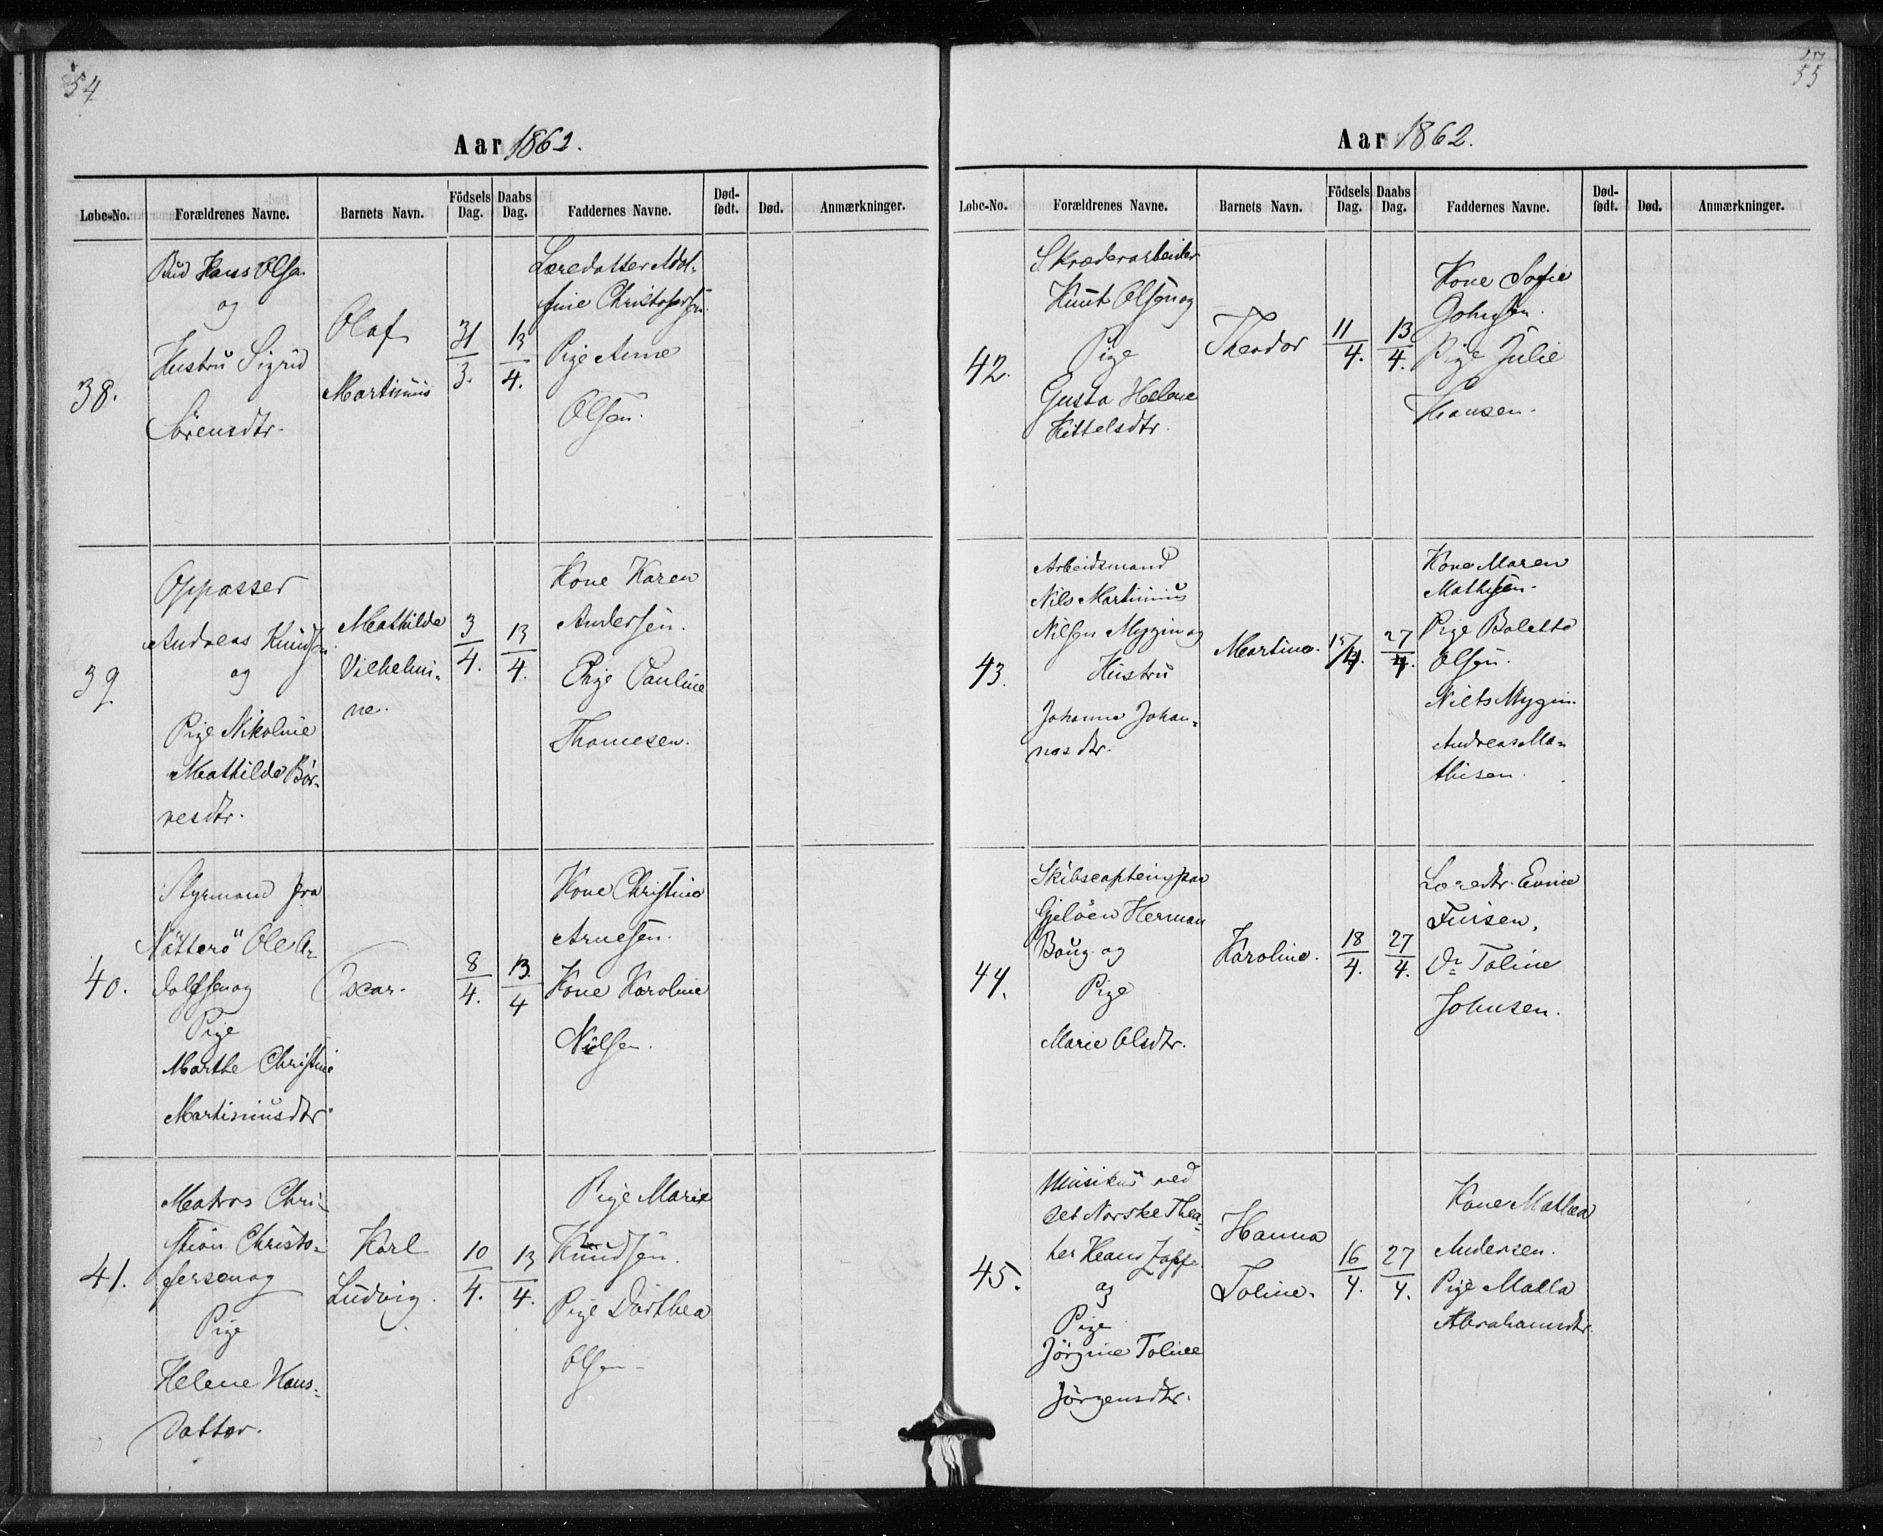 54
Aar 1862.
Løbe-No. Forældrenes Navne. Barnets Navn. Födsels Dag. Daabs Dag. Faddernes Navne. Død-født. Død. Anmærkninger.
38.
Bud Hans Olsen
og
Hustru Sigrid
Sörensdtr.
Olaf
Martinius
31/3.
13/4.
Læredatter Adol-
fine Christofersen.
Pige Anne
Olsen.
39
Oppasser
Andreas Knudsen
og
Pige Nikoline
Mathilde Bör-
resdtr.
Mathilde
Vilhelmi-
ne.
3/4.
13/4.
Kone Karen
Andersen.
Pige Pauline
Thomesen.
40.
Styrmand fra
Nötterö Ole A-
dolfsen og
Pige
Marthe Christine
Martiniusdtr.
Oscar.
8/4.
13/4
Kone Christine
Arnesen.
Kone Karoline
Nilsen.
41.
Matros Chri-
stian Christo-
fersen og
Pige
Helene Hans-
datter.
Karl
Ludvig.
10/4.
13/4.
Pige Marie
Knudsen.
Pige Dorthea
Olsen
55
Aar 1862.
Løbe-No. Forældrenes Navne. Barnets Navn. Födsels Dag. Daabs Dag. Faddernes Navne. Død-født. Død. Anmærkninger.
42.
Skræderarbeider
Knut Olsen og
Pige
Gusta Helene
Kittelsdtr.
Theodor
11/4.
13/4.
Kone Sofie
Johnsen.
Pige Julie
Hansen.
43.
Arbeidsmand
Nils Martinius
Nilsen Myggin og
Hustru
Johanne Johan-
nesdtr.
Martine.
15/4.
27/4.
Kone Maren
Mathisen.
Pige Bolette
Olsen.
Niels Mygin.
Andreas Ma-
thisen.
44.
Skibscaptein paa
Gjelöen Herman
Boug og
Pige
Marie Olsdtr.
Karoline.
18/4.
27/4.
Læredtr.
Dr Toline
Johnsen.
45.
Musikus ved
det Norske Thea-
ter Hans
og
Pige
Jörgine Toline
Jörgensdtr.
Hanna
Toline.
16/4.
27/4.
Kone Mathea
Andersen.
Pige Malla
Abrahamsdtr.